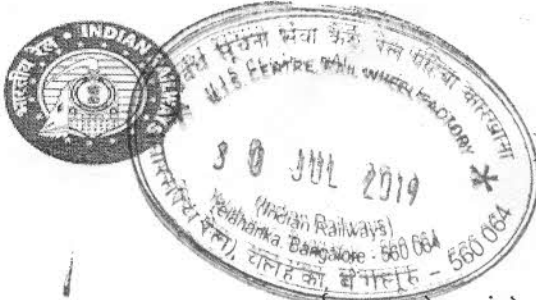 भारतीय रेल • INDIAN RAILWAYS
सूचना सेवा केंद्र, रेल पहिया कारखाना
M.I.S CENTRE RAIL WHEEL FACTORY
30 JUL 2019
(Indian Railways)
Yelahanka, Bangalore - 560 064
रेल), येलहंका, बेंगलूरु - 560 064